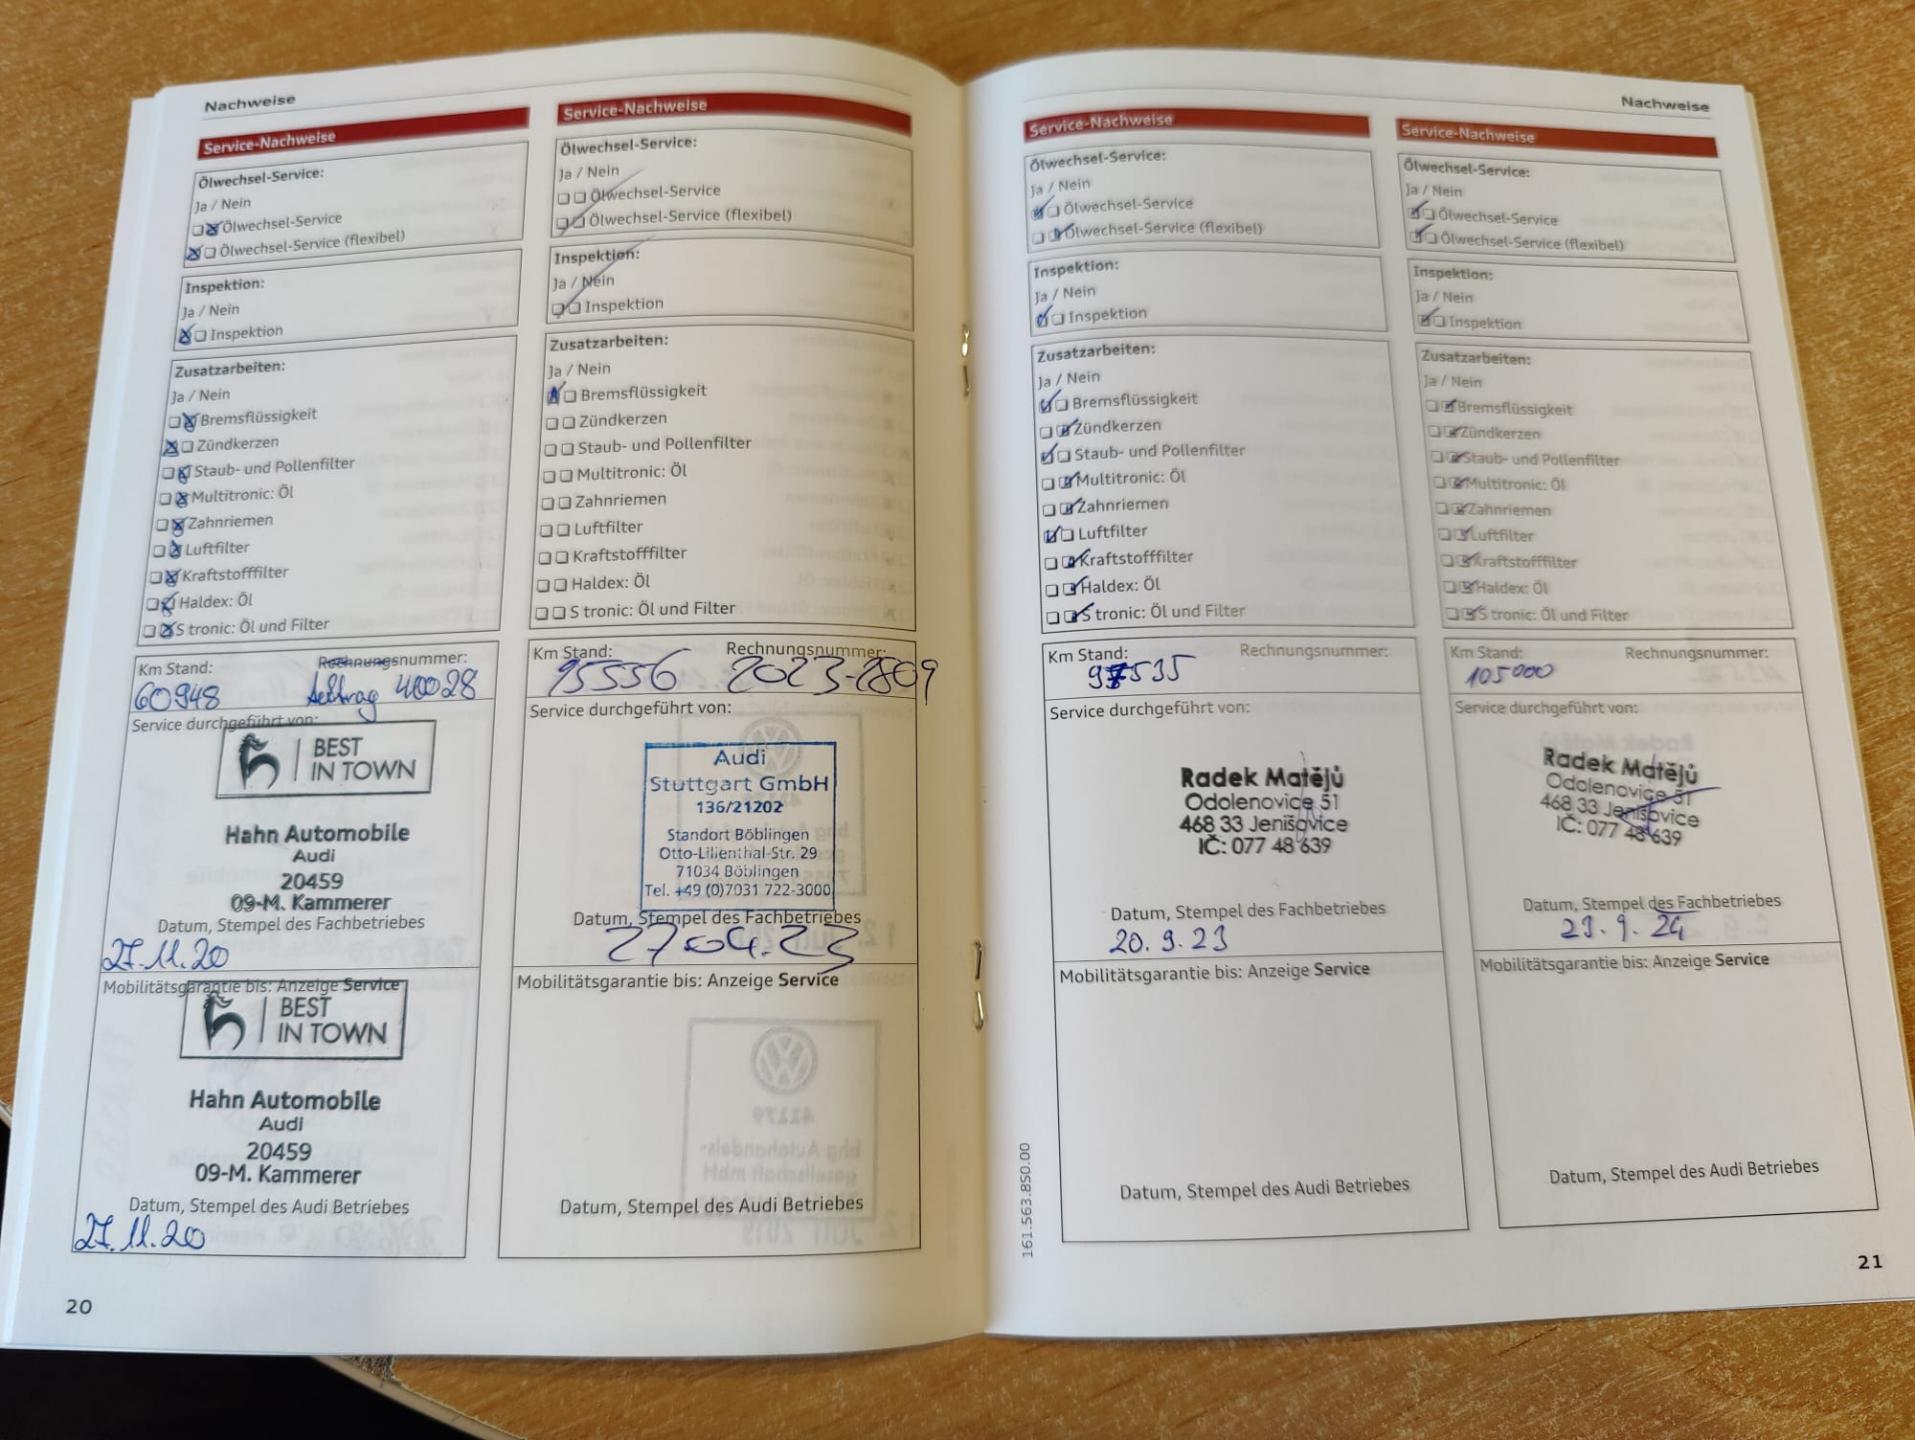 Nachweise
Service-Nachweise
Ölwechsel-Service:
Ja / Nein
Ölwechsel-Service
Ölwechsel-Service (flexibel)
Inspektion:
Ja / Nein
Inspektion
Zusatzarbeiten:
Ja / Nein
Bremsflüssigkeit
Zündkerzen
Staub- und Pollenfilter
Multitronic: Öl
Zahnriemen
Luftfilter
Kraftstofffilter
Haldex: Öl
S tronic: Öl und Filter
Km Stand: Rechnungsnummer:
60948 Auftrag 40028
Service durchgeführt von:
BEST
IN TOWN
Hahn Automobile
Audi
20459
09-M. Kammerer
Datum, Stempel des Fachbetriebes
27.11.20
Mobilitätsgarantie bis: Anzeige Service
BEST
IN TOWN
Hahn Automobile
Audi
20459
09-M. Kammerer
Datum, Stempel des Audi Betriebes
27.11.20
20
Service-Nachweise
Ölwechsel-Service:
Ja / Nein
Ölwechsel-Service
Ölwechsel-Service (flexibel)
Inspektion:
Ja / Nein
Inspektion
Zusatzarbeiten:
Ja / Nein
Bremsflüssigkeit
Zündkerzen
Staub- und Pollenfilter
Multitronic: Öl
Zahnriemen
Luftfilter
Kraftstofffilter
Haldex: Öl
S tronic: Öl und Filter
Km Stand: Rechnungsnummer:
95556 2023-2809
Service durchgeführt von:
Audi
Stuttgart GmbH
136/21202
Standort Böblingen
Otto-Lilienthal-Str. 29
71034 Böblingen
Tel. +49 (0)7031 722-3000
Datum, Stempel des Fachbetriebes
27.04.23
Mobilitätsgarantie bis: Anzeige Service
Datum, Stempel des Audi Betriebes
Nachweise
Service-Nachweise
Ölwechsel-Service:
Ja / Nein
Ölwechsel-Service
Ölwechsel-Service (flexibel)
Inspektion:
Ja / Nein
Inspektion
Zusatzarbeiten:
Ja / Nein
Bremsflüssigkeit
Zündkerzen
Staub- und Pollenfilter
Multitronic: Öl
Zahnriemen
Luftfilter
Kraftstofffilter
Haldex: Öl
S tronic: Öl und Filter
Km Stand: Rechnungsnummer:
97535
Service durchgeführt von:
Radek Matějů
Odolenovice 51
468 33 Jenišovice
IČ: 077 48 639
Datum, Stempel des Fachbetriebes
20. 9. 23
Mobilitätsgarantie bis: Anzeige Service
Datum, Stempel des Audi Betriebes
161.563.850.00
Service-Nachweise
Ölwechsel-Service:
Ja / Nein
Ölwechsel-Service
Ölwechsel-Service (flexibel)
Inspektion:
Ja / Nein
Inspektion
Zusatzarbeiten:
Ja / Nein
Bremsflüssigkeit
Zündkerzen
Staub- und Pollenfilter
Multitronic: Öl
Zahnriemen
Luftfilter
Kraftstofffilter
Haldex: Öl
S tronic: Öl und Filter
Km Stand: Rechnungsnummer:
105000
Service durchgeführt von:
Radek Matějů
Odolenovice 51
468 33 Jenišovice
IČ: 077 48 639
Datum, Stempel des Fachbetriebes
23. 9. 24
Mobilitätsgarantie bis: Anzeige Service
Datum, Stempel des Audi Betriebes
21